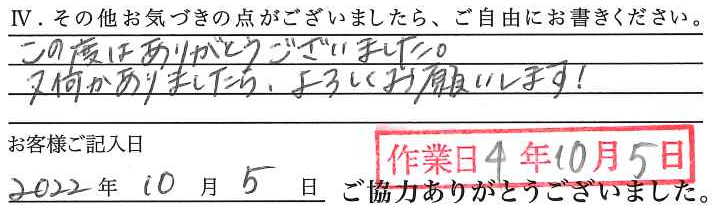 Ⅳ．その他お気づきの点がございましたら、ご自由にお書きください。
この度はありがとうございました。
又何かありましたら、よろしくお願いします！
お客様ご記入日
作業日 4 年 10 月 5 日
2022 年 10 月 5 日 ご協力ありがとうございました。